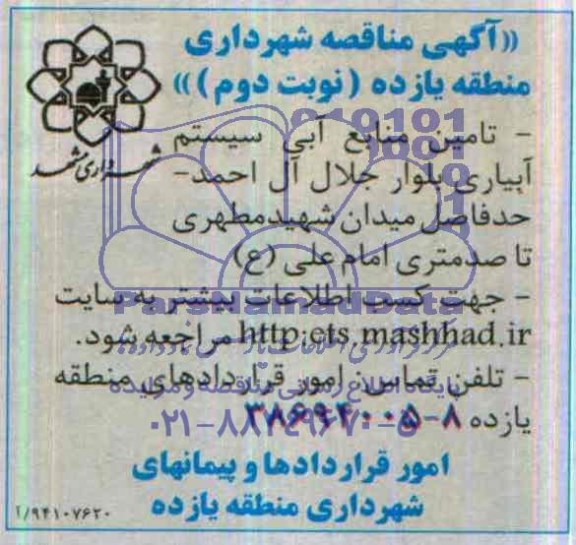 «آگهی مناقصه شهرداری
منطقه یازده (نوبت دوم)»
شهرداری مشهد
- تامین منابع آبی سیستم
آبیاری بلوار جلال آل احمد-
حدفاصل میدان شهیدمطهری
تا صدمتری امام علی (ع)
- جهت کسب اطلاعات بیشتر به سایت
http:ets.mashhad.ir مراجعه شود.
- تلفن تماس: امور قراردادهای منطقه
یازده ۸-۳۸۶۹۴۰۰۵
امور قراردادها و پیمانهای
شهرداری منطقه یازده
۱/۹۴۱۰۷۶۲۰
ParsNamadData
پایگاه اطلاع رسانی مناقصه و مزایده
۰۲۱-۸۸۳۴۹۶۷۰-۵